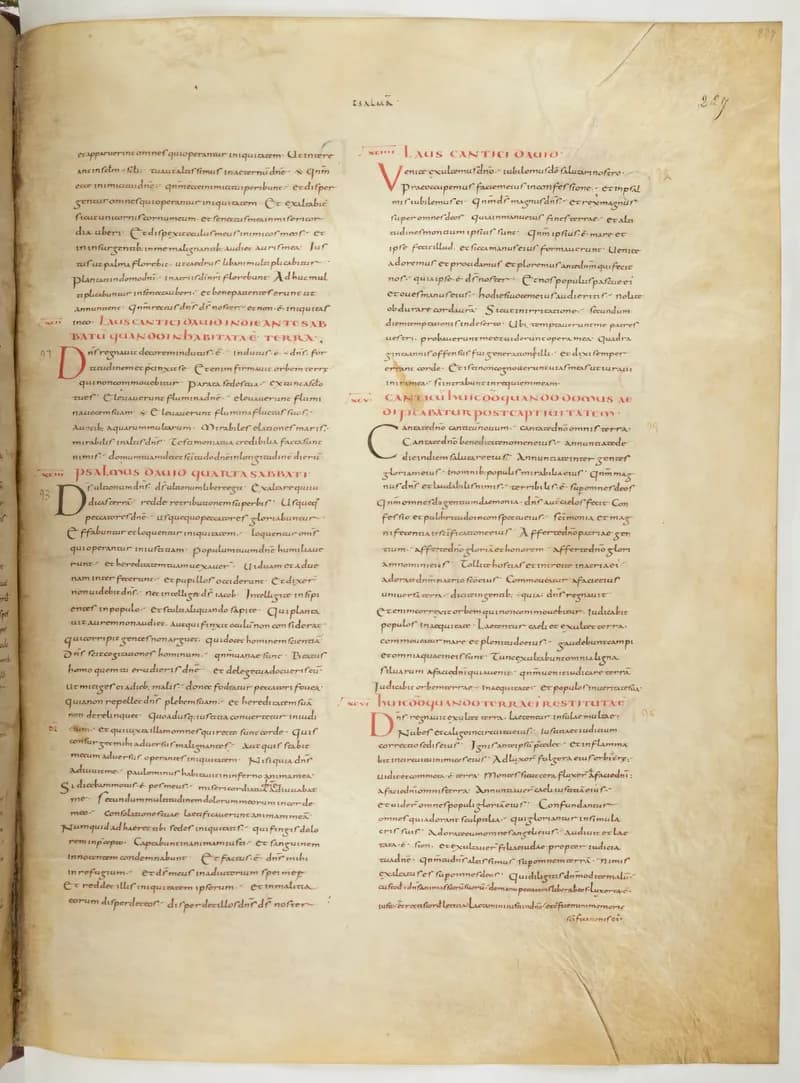 PSALMR
227
et apparuerint omnes qui operantur iniquitatem. Ut intere
ant in sclm scli. tu aut altissimus in aeternu dne. & qnm
ecce inimici tui dne. qnm ecce inimici tui peribunt. et disper
gentur omnes qui operantur iniquitate. Et exaltabit
sicut unicornis cornu meum. et senectus mea in misericor
dia uberi. Et dispexit oculus meus inimicos meos. et
in insurgentib; in me malignantib; audiet auris mea. Jus
tus ut palma florebit. ut caedrus libani multiplicabitur.
Plantati in domo dni. in atriis di nri florebunt. Adhuc mul
tiplicabuntur in senecta uberi. et bene patientes erunt ut
annuntient. Qnm rectus dns ds noster. et non e iniquitas
in eo.
XCII LAUS CANTICI DAUID IN DIE ANTE SAB
BATU QUANDO INHABITATA E TERRA.
97
Dns regnauit decorem indutus e. indutus e dns for
titudinem et praecinxit se. Et enim firmauit orbem terre
qui non commouebitur. Parata sedes tua ex tunc a sclo
tu es. Eleuauerunt flumina dne. eleuauerunt flumi
na uocem sua. & Eleuauerunt flumina fluctus suos.
A uocib; aquarum multarum. Mirabiles elationes maris.
mirabilis in altis dns. Testimonia tua credibilia facta sunt
nimis. domum tuam decet scitudo dne in longitudine dieru.
XCIII PSALMUS DAUID QUARTA SABBATI
93
Ds ultionum dns. ds ultionum libere egit. Exaltare qui iu
dicas terra. redde retributionem superbis. Usqueq;
peccatores dne. usquequo peccatores gloriabuntur.
Effabuntur et loquentur iniquitatem. loquentur oms
qui operantur iniustitiam. Populum tuum dne humiliaue
runt. et hereditatem tuam uexauer. Uiduam et adue
nam interfecerunt. et pupillos occiderunt. Et dixer
non uidebit dns. nec intelleget ds iacob. Intellegite insipi
entes in populo. et stulti aliquando sapite. Qui planta
uit aurem non audiet. aut qui finxit oculu non considerat.
Qui corripit gentes non arguet. qui docet hominem scientia.
Dns scit cogitationes hominum. qnm uanae sunt. Beatus
homo quem tu erudieris dne. et de lege tua docueris eu.
Ut mitiges ei a dieb; malis. donec fodeatur peccatori fouea.
Quia non repellet dns plebem suam. et hereditatem sua
non derelinquet. Quoadusq; iustitia conuertatur in iudi
cium. et qui iuxta illam omnes qui recto sunt corde. Quis
consurget mihi aduersus malignantes. Aut quis stabit
mecum aduersus operantes iniquitatem. Nisi quia dns
adiuuit me. paulo minus habitauit in inferno anima mea.
Si dicebam motus e pes meus. misericordia tua dne adiuuabat
me. Secundum multitudinem dolorum meorum in corde
meo. Consolationes tuae laetificauerunt animam mea.
Numquid adhaeret tibi sedes iniquitatis. qui fingis dolo
rem in praecepto. Captabunt in animam iusti. et sanguinem
innocentem condemnabunt. Et factus e dns mihi
in refugium. et ds meus in adiutorium spei meae.
Et reddet illis iniquitatem ipsorum. et in malitia
eorum disperdet eos. disperdet illos dns ds noster.
XCIIII LAUS CANTICI DAUID.
Venite exultemus dno. iubilemus do salutari nostro.
Praeoccupemus faciem eius in confessione. et in psal
mis iubilemus ei. Qnm ds magnus dns. et rex magnus
super omnes deos. Quia in manu eius fines terrae. et alti
tudines montium ipsius sunt. Qnm ipsius e mare et
ipse fecit illud. et sicca manus eius formauerunt. Uenite
adoremus et procidamus et ploremus ante dnm qui fecit
nos. quia ipse e ds noster. Et nos populus pascue ei
et oues manus eius. hodie si uocem eius audieritis. nolite
obdurare corda ura. Sicut in irritatione. secundum
diem temptationis in deserto. Ubi temptauerunt me patres
uestri. probauerunt me et uiderunt opera mea. Quadra
ginta annis offensus fui generationi illi. et dixi semper
errant corde. Et isti non cognouerunt uias meas ut iuraui
in ira mea. si intrabunt in requiem meam.
XCV CANTICU HUIC DD QUANDO DOMUS AE
DIFICABATUR POST CAPTIUITATEM.
Cantate dno canticu nouum. cantate dno omnis terra.
Cantate dno benedicite nomen eius. annuntiate de
die in diem salutare eius. Annuntiate inter gentes
gloriam eius. in omnib; populis mirabilia eius. Qnm mag
nus dns et laudabilis nimis. terribilis e sup omnes deos
Qnm omnes dii gentium demonia. dns aut caelos fecit. Con
fessio et pulchritudo in conspectu eius. scimonia et mag
nificentia in scificatione eius. Afferte dno patriae gen
tium. afferte dno gloria et honorem. afferte dno glori
am nomini eius. Tollite hostias et introite in atria ei.
adorate dnm in atrio sco eius. Commoueatur a facie eius
uniuersa terra. dicite in gentib; quia dns regnauit.
Et enim correxit orbem qui non commouebitur. iudicabit
populos in aequitate. Laetentur caeli et exultet terra.
commoueatur mare et plenitudo eius. gaudebunt campi
et omnia quae in eis sunt. Tunc exultabunt omnia ligna
siluarum a facie dni quia uenit. qnm uenit iudicare terra.
Judicabit orbem terrae in aequitate. et populos in ueritate sua.
XCVI HUIC DD QUANDO TERRA EI RESTITUTA E
96
Dns regnauit exultet terra. laetentur insulae multae.
Nubes et caligo in circuitu eius. iustitia et iudicium
correctio sedis eius. Ignis ante ipsu praecedet. et inflamma
bit in circuitu inimicos eius. Adluxer fulgora eius orbi terre.
uidit et commota e terra. Montes sicut cera fluxer a facie dni.
a facie dni omnis terra. Annuntiauer caeli iustitia eius.
et uider omnes populi gloria eius. Confundantur
omnes qui adorant sculptilia. qui gloriantur in simula
cris suis. Adorate eum omnes angeli eius. audiuit et lae
tata e sion. et exultauer filiae iudae propter iudicia
tua dne. Qnm tu dns altissimus sup omnem terra. nimis
exaltatus es sup omnes deos. Qui diligitis dnm odite malu.
custodit dns animas scoru suoru. de manu peccatoris liberabit eos. Lux orta e
iusto. et rectis corde laetitia. Laetamini iusti in dno. et confitemini memorie
scificationis ei.